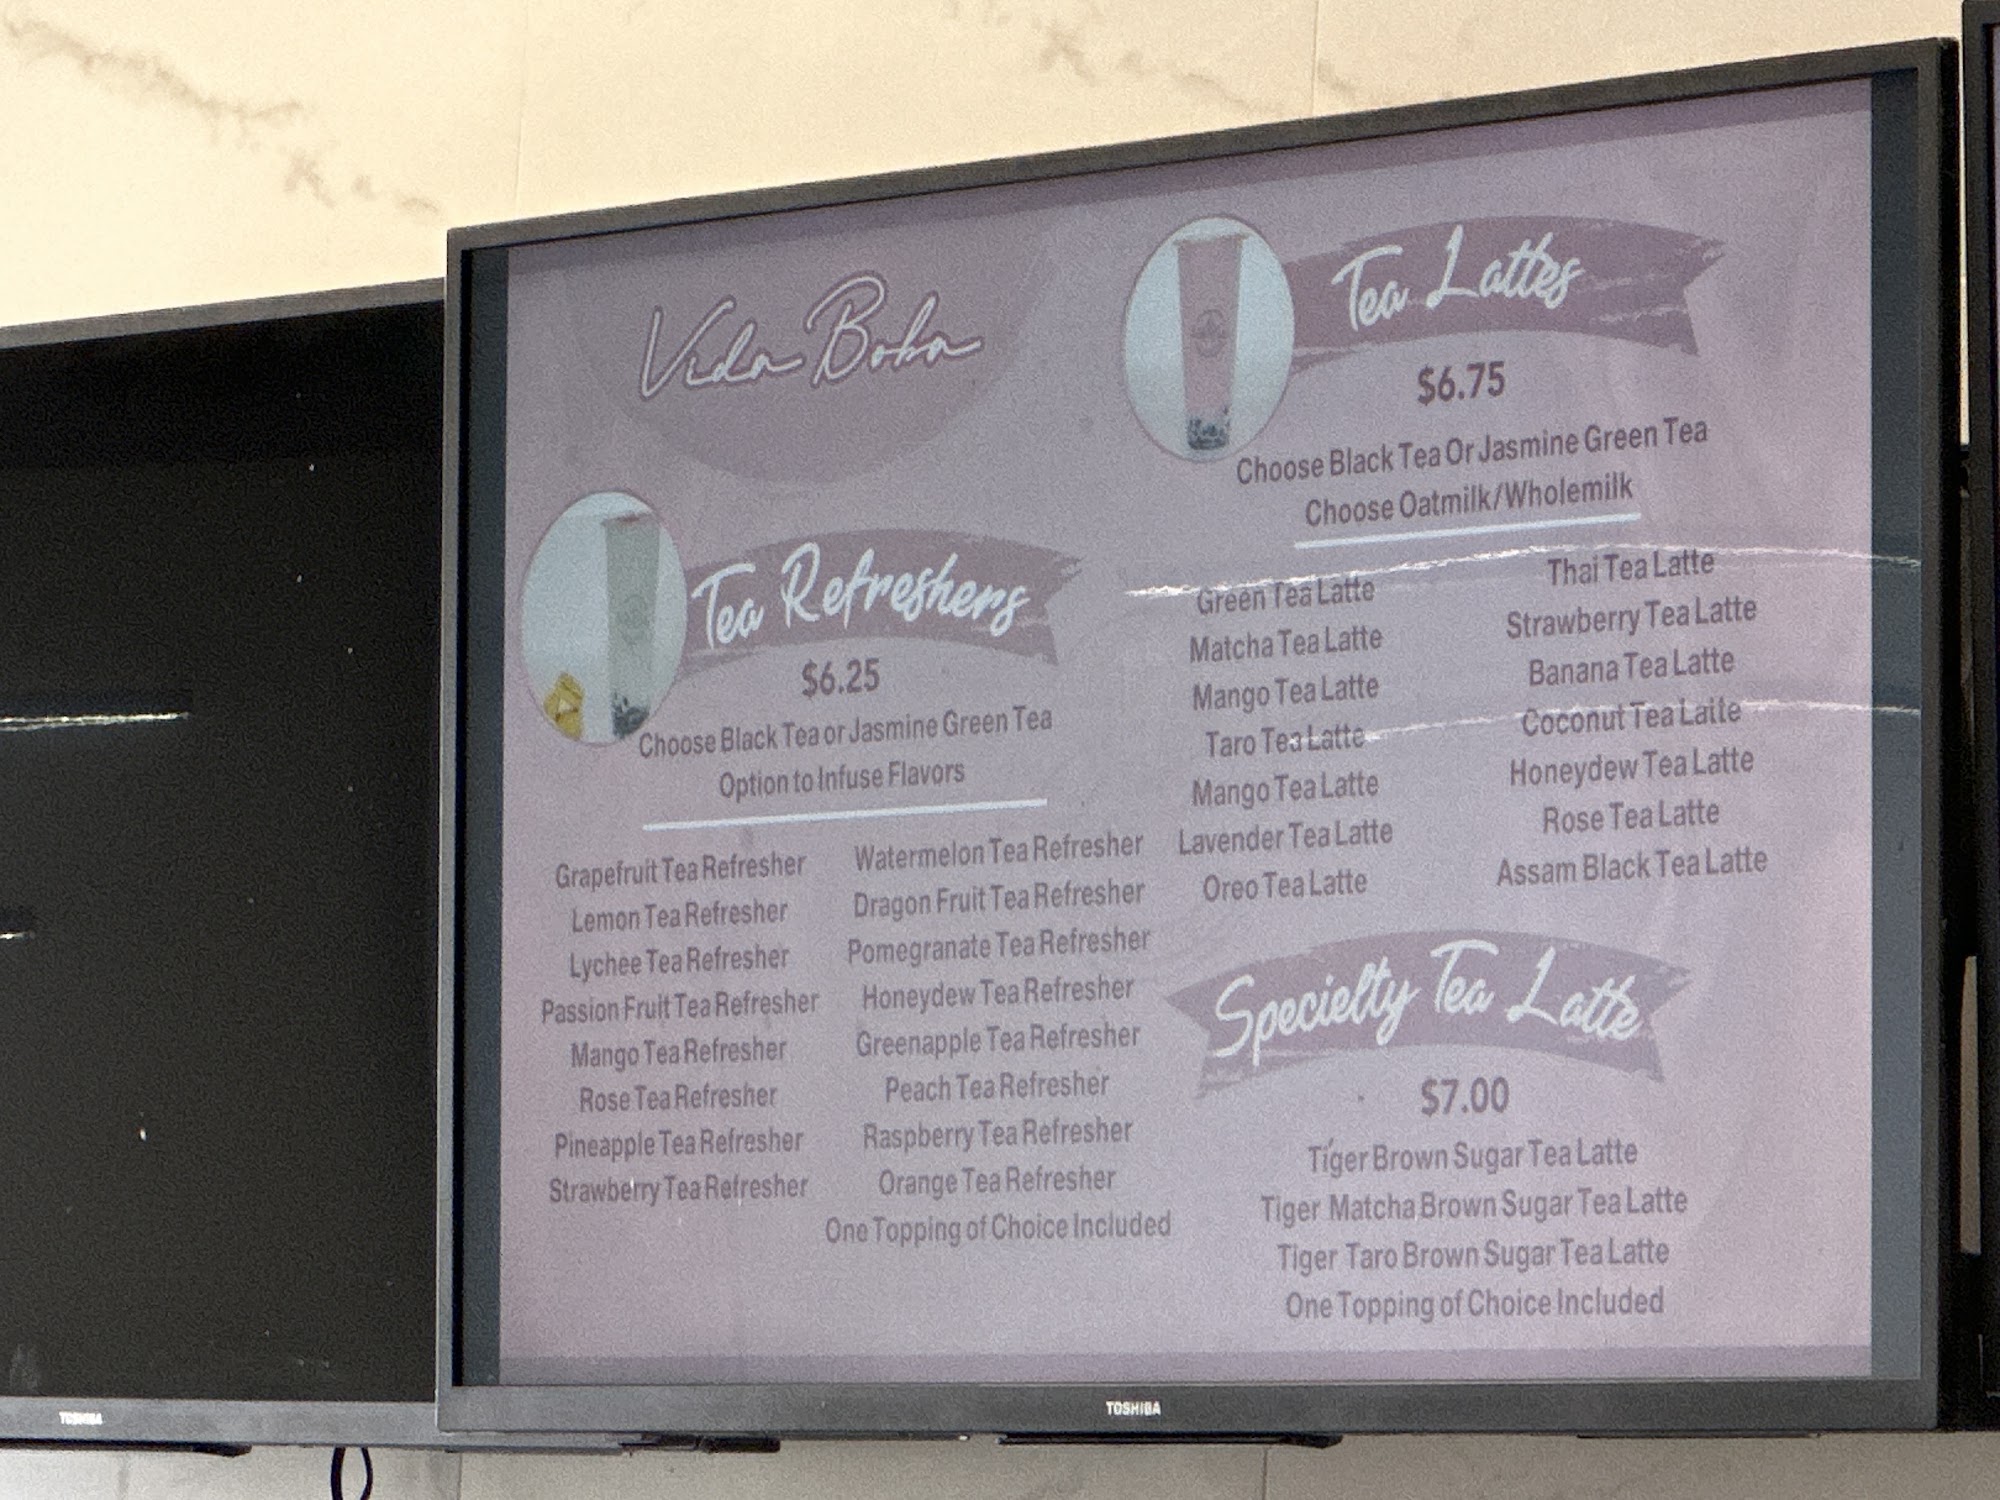 Vida Boba
Tea Refreshers
$6.25
Choose Black Tea or Jasmine Green Tea
Option to Infuse Flavors
Grapefruit Tea Refresher
Lemon Tea Refresher
Lychee Tea Refresher
Passion Fruit Tea Refresher
Mango Tea Refresher
Rose Tea Refresher
Pineapple Tea Refresher
Strawberry Tea Refresher
Watermelon Tea Refresher
Dragon Fruit Tea Refresher
Pomegranate Tea Refresher
Honeydew Tea Refresher
Greenapple Tea Refresher
Peach Tea Refresher
Raspberry Tea Refresher
Orange Tea Refresher
One Topping of Choice Included
Tea Lattes
$6.75
Choose Black Tea Or Jasmine Green Tea
Choose Oatmilk/Wholemilk
Green Tea Latte
Matcha Tea Latte
Mango Tea Latte
Taro Tea Latte
Mango Tea Latte
Lavender Tea Latte
Oreo Tea Latte
Thai Tea Latte
Strawberry Tea Latte
Banana Tea Latte
Coconut Tea Latte
Honeydew Tea Latte
Rose Tea Latte
Assam Black Tea Latte
Specielty Tea Latte
$7.00
Tiger Brown Sugar Tea Latte
Tiger Matcha Brown Sugar Tea Latte
Tiger Taro Brown Sugar Tea Latte
One Topping of Choice Included
TOSHIBA
TOSHIBA